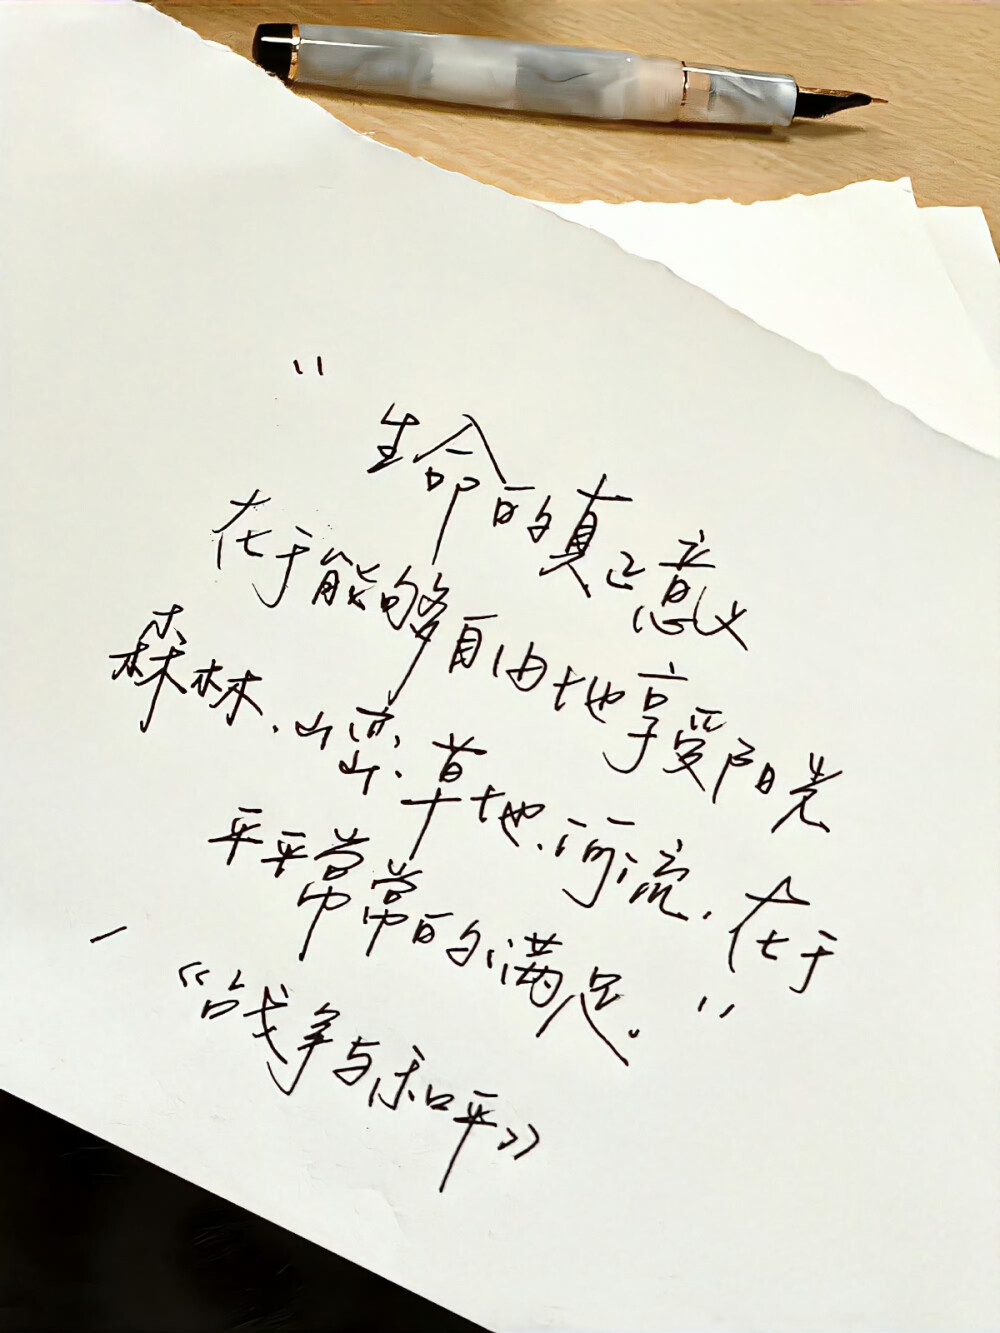 “生命的真正意义
在于能够自由地享受阳光
森林、山峦、草地、河流,在于
平平常常的满足。”
—《战争与和平》